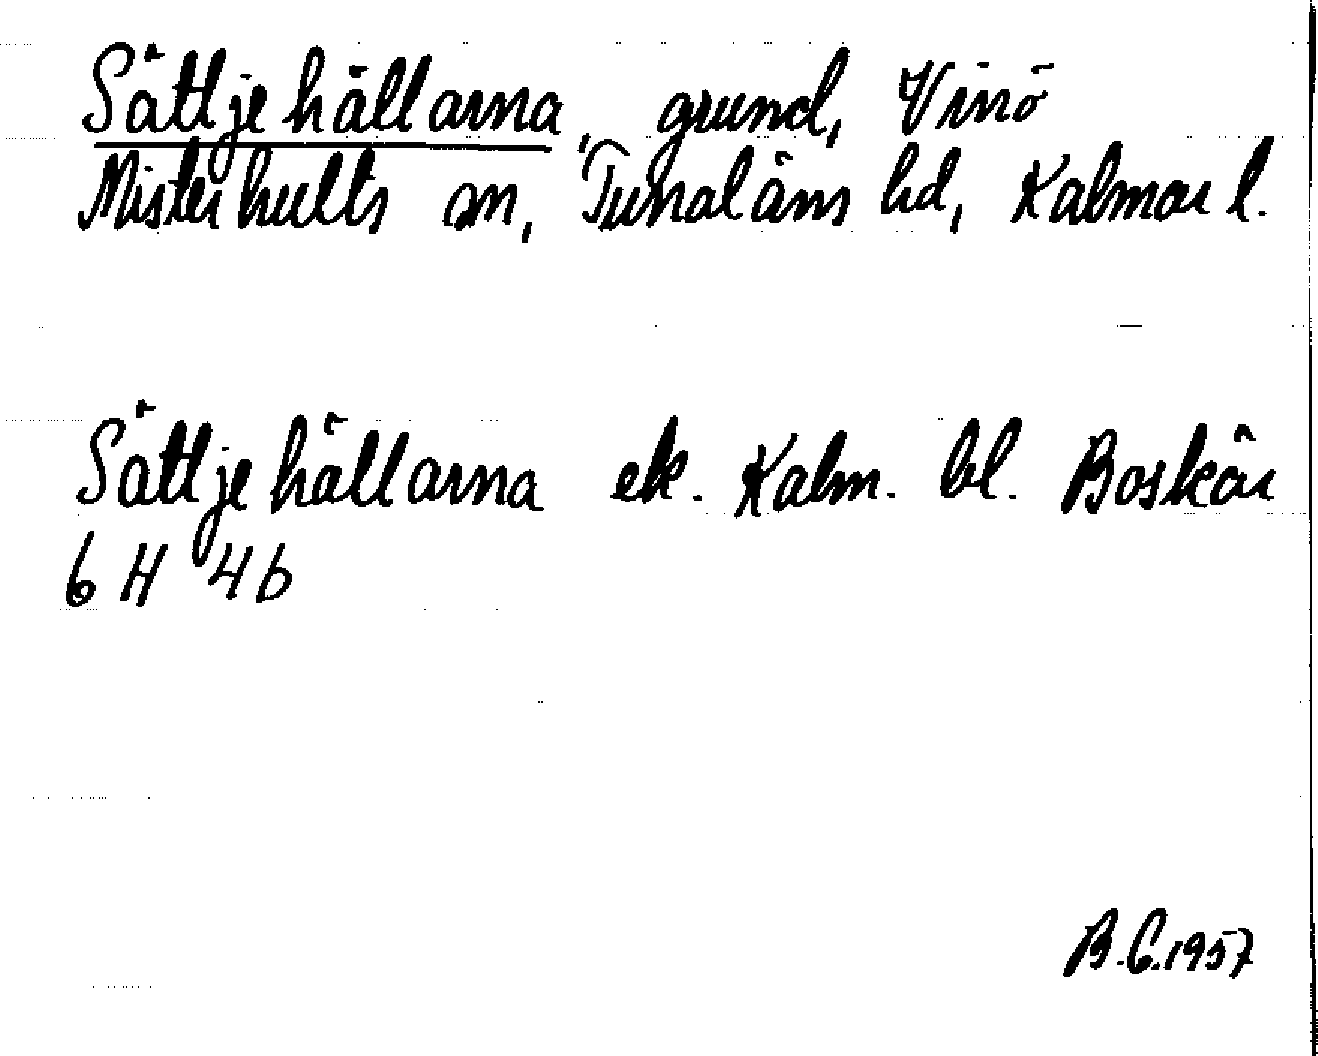 Sättjehällarna, grund, Vinö
Misterhults sn, Tunaläns hd, Kalmar l.
Sättjehällarna ek. Kalm. bl. Boskär
6 H 4b
B.G.1957